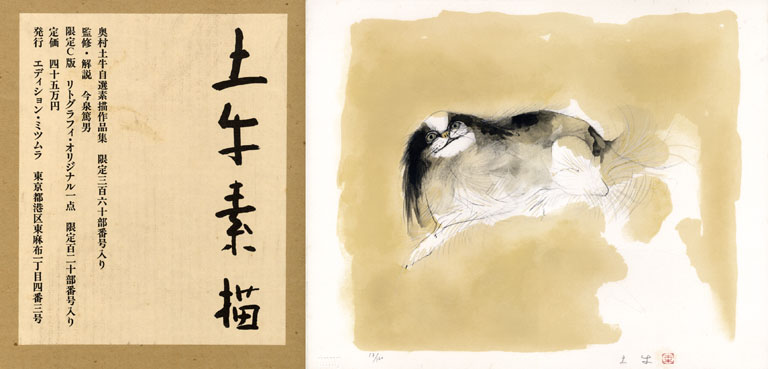 土牛素描
奥村土牛自選素描作品集　限定三百六十部番号入り
監修・解説　今泉篤男
限定C版　リトグラフィ・オリジナル一点　限定百二十部番号入り
定価　四十五万円
発行　エディション・ミツムラ　東京都港区東麻布一丁目四番三号
土牛